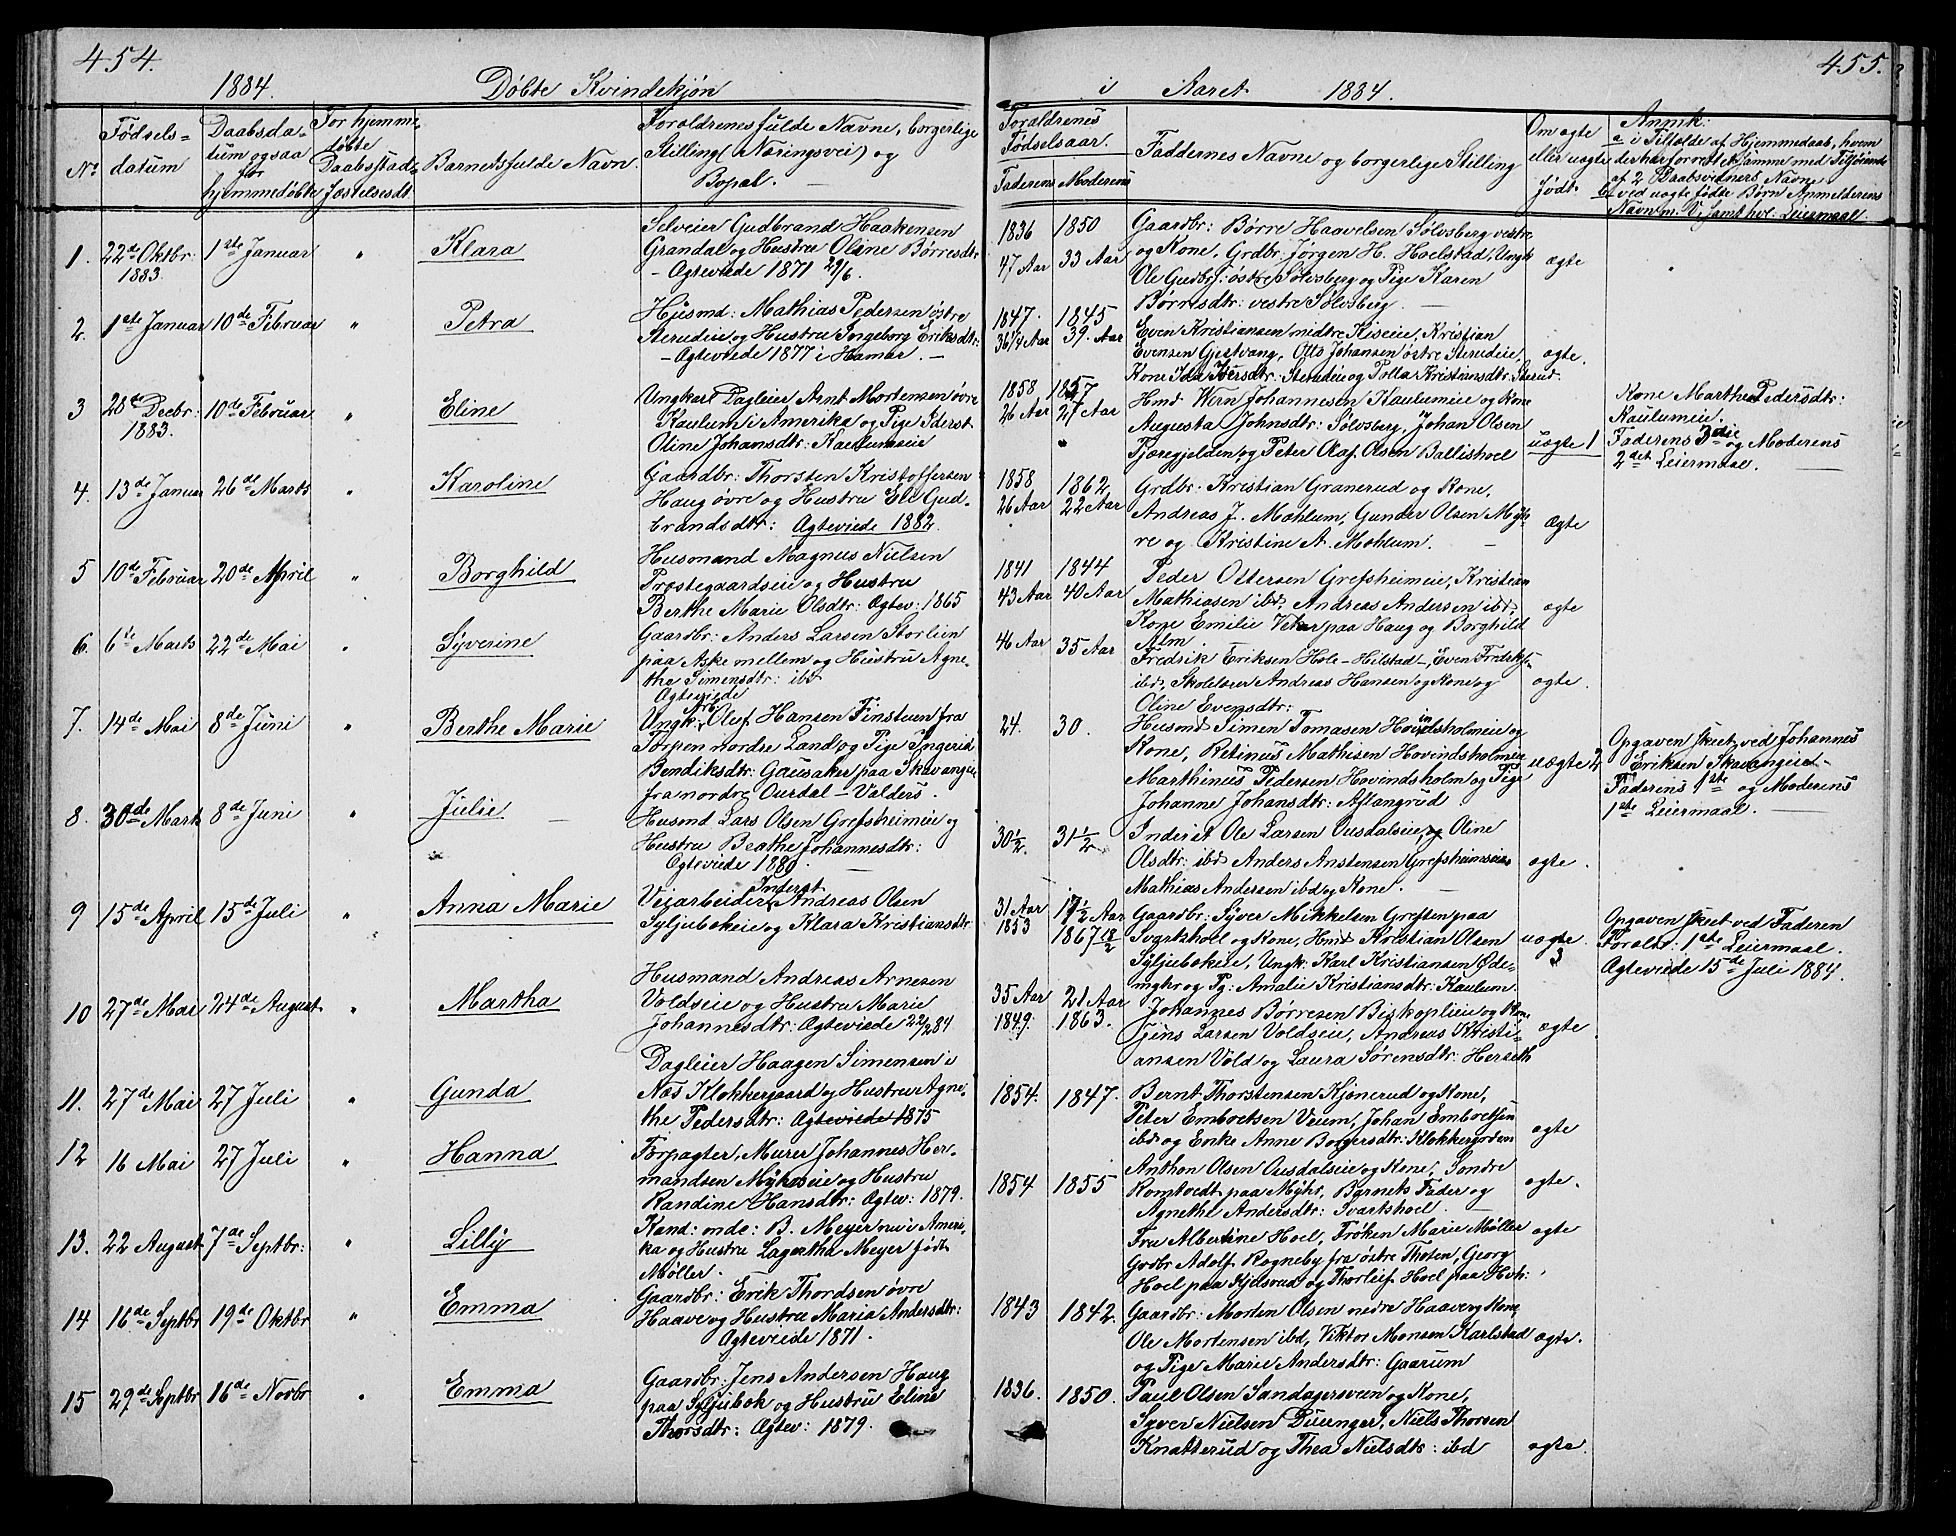 454.
1884. Døbte Kvindekjøn
Nº
Fødsels=
datum
Daabsda=
tum ogsaa
for
hjemmedøbte
For hjemme=
døbte
Daabsstad=
fæstelsesdt.
Barnets fulde Navn
Forældrenes fulde Navne, borgerlige
Stilling (Næringsvei) og
Bopæl.
1. 22de Oktbr 1883. 1ste Januar " Klara
Selveier Gudbrand Haakensen
Grandal og Hustru Oline Børresdtr
- Ægteviede 1871 29/6.
2. 1ste Januar 10de Februar " Petra
Husmd: Mathias Pedersen østre
Sterudeie og Hustru Ingeborg Eriksdtr:
- Ægteviede 1877 i Hamar. -
3 28de Decbr. 1883. 10de Februar " Eline
Ungkarl Dagleier Arnt Mortensen øvre
Kaulum i Amerika og Pige Inderst
Oline Johansdtr: Kaulumeie
4. 13de Januar 26de Marts " Karoline
Gaardbr: Thorsten Kristoffersen
Haug øvre og Hustru Eli Gud-
brandsdtr: Ægteviede 1882.
5 10de Februar 20de April " Borghild
Husmand Magnus Nielsen
Præstegaardseie og Hustru
Berthe Marie Olsdtr: Ægtev: 1865
6. 6te Marts 22de Mai " Syverine
Gaardbr: Anders Larsen Storlien
paa Aske mellem og Hustru Agne-
the Simensdtr: ibd
Ægteviede
7. 14de Mai 8de Juni " Berthe Marie
Ungk: Arb: Oluf Hansen Finstuen fra
Torpen nordre Land og Pige Ingerid
Bendiksdtr: Gausaker paa Skavangeie
fra nordre Ourdal - Valders.
8. 30de Marts 8de Juni " Julie
Husmd Lars Olsen Grefsheimeie og
Hustru Beathe Johannesdtr:
Ægteviede 1880
9 15de April 15de Juli " Anna Marie
Veiarbeider Inderst Andreas Olsen
Syljubokeie og Klara Kristiansdtr
10 27de Mar 24de August " Martha
Husmand Andreas Arnesen
Voldseie og Hustru Marie
Johannesdtr: Ægteviede 22/2 84.
11. 27de Mai 27 Juli " Gunda
Dagleier Haagen Simensen i
Næs Klokkergaard og Hustru Agne-
the Pedersdtr: Ægteviede 1875
12 16 Mai 27 Juli " Hanna
Forpagter, Murer Johannes Her-
mandsen Myhreie og Hustru
Randine Hansdtr: Ægtev: 1879.
13. 22 August 7de Septbr: " Lilly
Kand: onde: B. Meyer nu i Ameri-
ka og Hustru Lagertha Meyer født
Møller.
14 16de Septbr 19de Oktbr " Emma
Gaardbr: Erik Thordsen øvre
Haave og Hustru Maria Andersdtr:
Ægteviede 1871.
15 29de Septbr 16de Novbr " Emma
Gaardbr: Jens Andersen Haug
paa Syljubok og Hustru Eline
Thorsdtr: Ægtev: 1879.
455.
i Aaret 1884.
Forældrenes
Fødselsaar.
Faderens Moderens
Faddernes Navne og borgerlige Stilling
Om ægte
eller uægte
født.
Anmk:
a i Tilfælde af Hjemmedaab, hvem
der har forrettet samme med Tilføiende
af 2 Daabsvidners Navne
b ved uægte fødte Børn Anmelderens
Navn m. V. samt hvl: Leiermaal
1836 1850
47 Aar 33 Aar
Gaardbr: Børre Haavelsen Sølvsberg vestre
og Kone, Grdbr: Jørgen H. Hoelstad, Ungk
Ole Gudbr: østre Sølvsberg og Pige Karen
Børresdtr: vestre Sølvsberg.
ægte
1847. 1845
36 1/4 Aar 39. Aar
Even Kristiansen midtre Kiseie, Kristian
Evensen Gjestvang, Otto Johansen østre Sterudeie,
Kone Ida Iversdtr: Sterudeie og Polla Kristiansdtr: Sterud.
ægte.
1858 1857
26 Aar 27 Aar
Hmd Kern Johannesen Kaulumeie og Kone
Augusta Johnsdtr: Sølvsberg, Johan Olsen
Tjæregjolden og Peter Olaf Olsen Ballishoel
uægte 1
Kone Marthe Pedersdtr:
Kaulumeie.
Faderens 3die og Moderens
2det Leiermaal.
1858 1862
26 Aar 22 Aar
Grdbr. Kristian Granerud og Kone,
Andreas J. Mæhlum, Gunder Olsen Myh-
re og Kristine A. Mæhlum.
Ægte
1841 1844
43 Aar 40 Aar
Peder Ottersen Grefsheimeie, Kristian
Mathiasen ibd, Andreas Andersen ibd,
Kone Emilie paa Haug og Borghild
Alm
ægte
46 Aar 35 Aar
Fredrik Eriksen Hole-Hilstad-, Even Fredriks-
ibd, Skolelærer Andreas Hansen og Kone og
Oline Evensdtr:
ægte.
24. 30.
Husmd Simen Tomasen Hovindsholmeie og
Kone, Retinus Mathisen Hovindsholmeie
Marthinus Pedersen Hovindsholm og Pige
Johanne Johansdtr: Aflangrud
uægte 2
Opgaven skeet ved Johannes
Eriksen Skavangeie-
Faderens 1ste og Moderens
1ste Leiermaal.
30 1/2 31 1/2
Inderst Ole Larsen Ousdalseie, og Oline
Olsdtr: ibd Anders Anstensen Grefsheimseie
Mathias Andersen ibd og Kone.
ægte.
31 Aar 17 1/2 Aar
1853 1867 18/2
Gaardbr: Syver Mikkelsen Greften paa
Svartshoel og Kone, Hmd Kristian Olsen
Syljubokeie, Ungk: Karl Kristiansen Øde-
myhr og Pg: Amalie Kristiansdtr: Kaulum.
uægte.
3
Opgaven skeet ved Faderen
Foraldr: 1ste Leiermaal.
Ægteviede 15de Juli 1884.
35 Aar 21 Aar
1849. 1863.
Johannes Børresen Biskoplieie og Kone
Jens Larsen Voldseie, Andreas Kristi-
ansen Vold og Laura Sørensdtr: Herseth
ægte.
1854. 1847.
Bernt Thorstensen Kjønerud og Kone,
Peter Embretsen Veum, Johan Embretsen
ibd og Enke Anne Borgersdtr: Klokkergarden
ægte
1854 1855
Anthon Olsen Ousdalseie og Kone, Sondre
Romtvedt paa Myhr, Barnets Fader og
Agnethe Andersdtr: Svartshoel.
ægte.
Fru Albertine Hoel, Frøken Marie Møller
Grdbr Adolf Rogneby fra østre Thoten, Georg
Hoel paa Kjelsrud og Thorleif Hoel paa Hoh:
ægte
1843 1842.
Gaardbr: Morten Olsen nedre Haave og Kone
Ole Mortensen ibd, Viktor Monsen Karlstad
og Pige Marie Andersdtr: Gaarum
ægte.
1836. 1850.
Paul Olsen Sandagersveen og Kone,
Syver Nielsen Duenger, Niels Thorsen
Knatterud og Thea Nielsdtr: ibd
ægte.